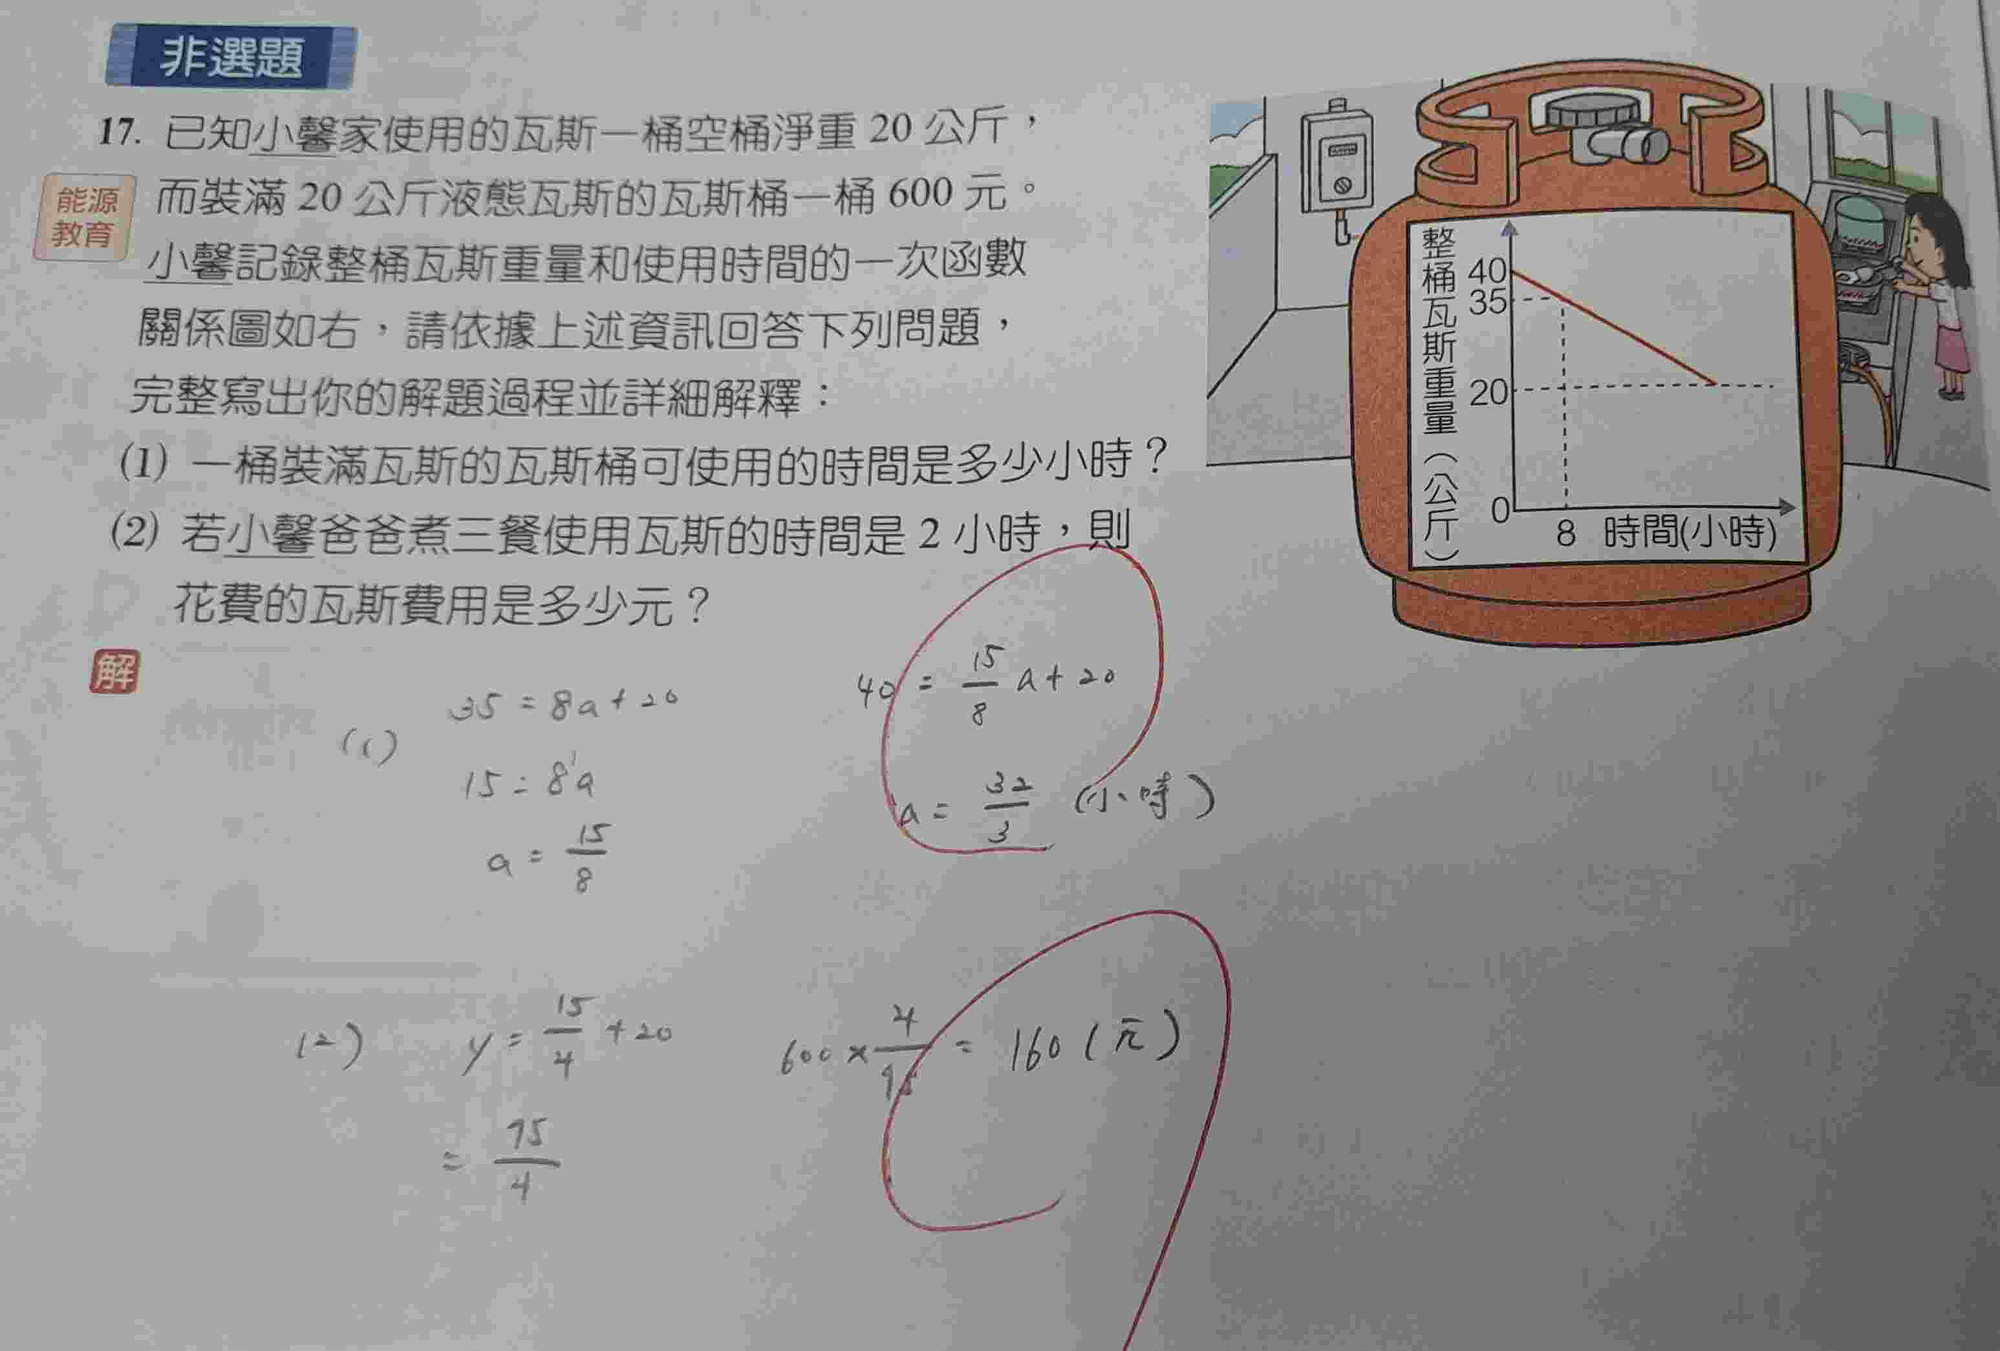 非選題
17. 已知小馨家使用的瓦斯一桶空桶淨重 20 公斤，
能源教育
而裝滿 20 公斤液態瓦斯的瓦斯桶一桶 600 元。
小馨記錄整桶瓦斯重量和使用時間的一次函數
關係圖如右，請依據上述資訊回答下列問題，
完整寫出你的解題過程並詳細解釋：
(1) 一桶裝滿瓦斯的瓦斯桶可使用的時間是多少小時？
(2) 若小馨爸爸煮三餐使用瓦斯的時間是 2 小時，則
花費的瓦斯費用是多少元？
整桶瓦斯重量（公斤）
40
35
20
0
8 時間(小時)
解
(1)
35 = 8a + 20
15 = 8a
a = 15/8
40 = 15/8 a + 20
a = 32/3 (小時)
(2) y = 15/4 + 20
= 95/4
600 × 4/15 = 160 (元)